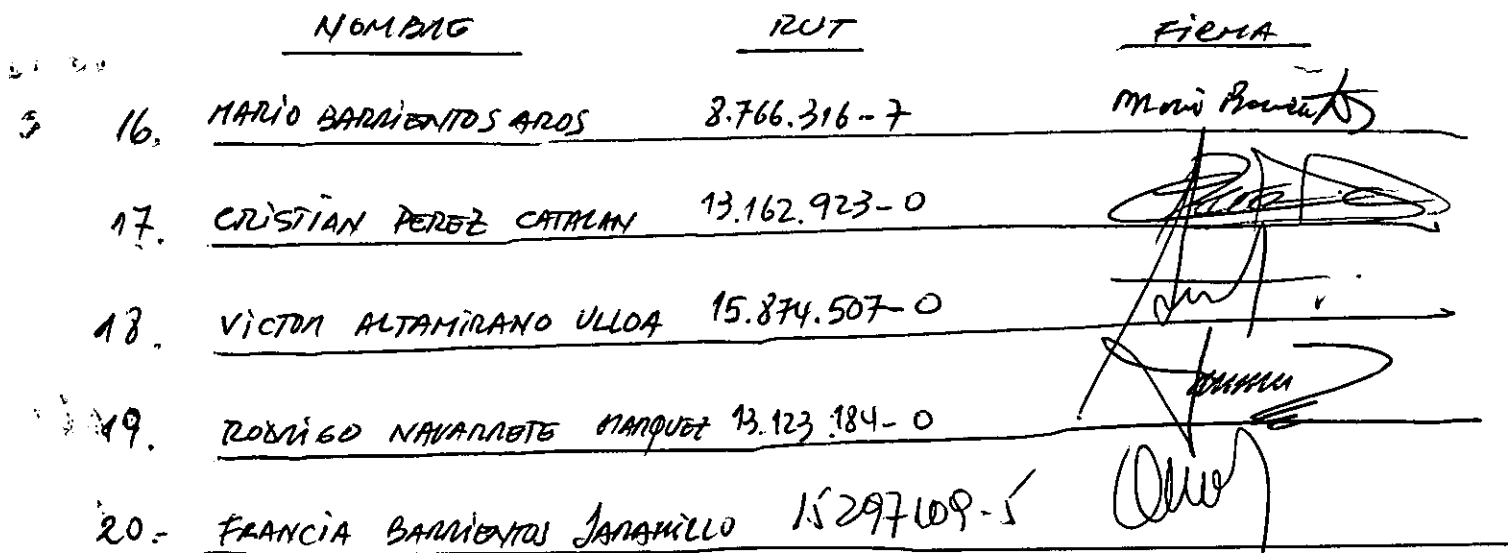 NOMBRE RUT FIRMA
16. MARIO BARRIENTOS AROS 8.766.316-7
17. CRISTIAN PEREZ CATALAN 13.162.923-0
18. VICTOR ALTAMIRANO ULLOA 15.874.507-0
19. RODRIGO NAVARRETE MARQUEZ 13.123.184-0
20.- FRANCIA BARRIENTOS JARAMILLO